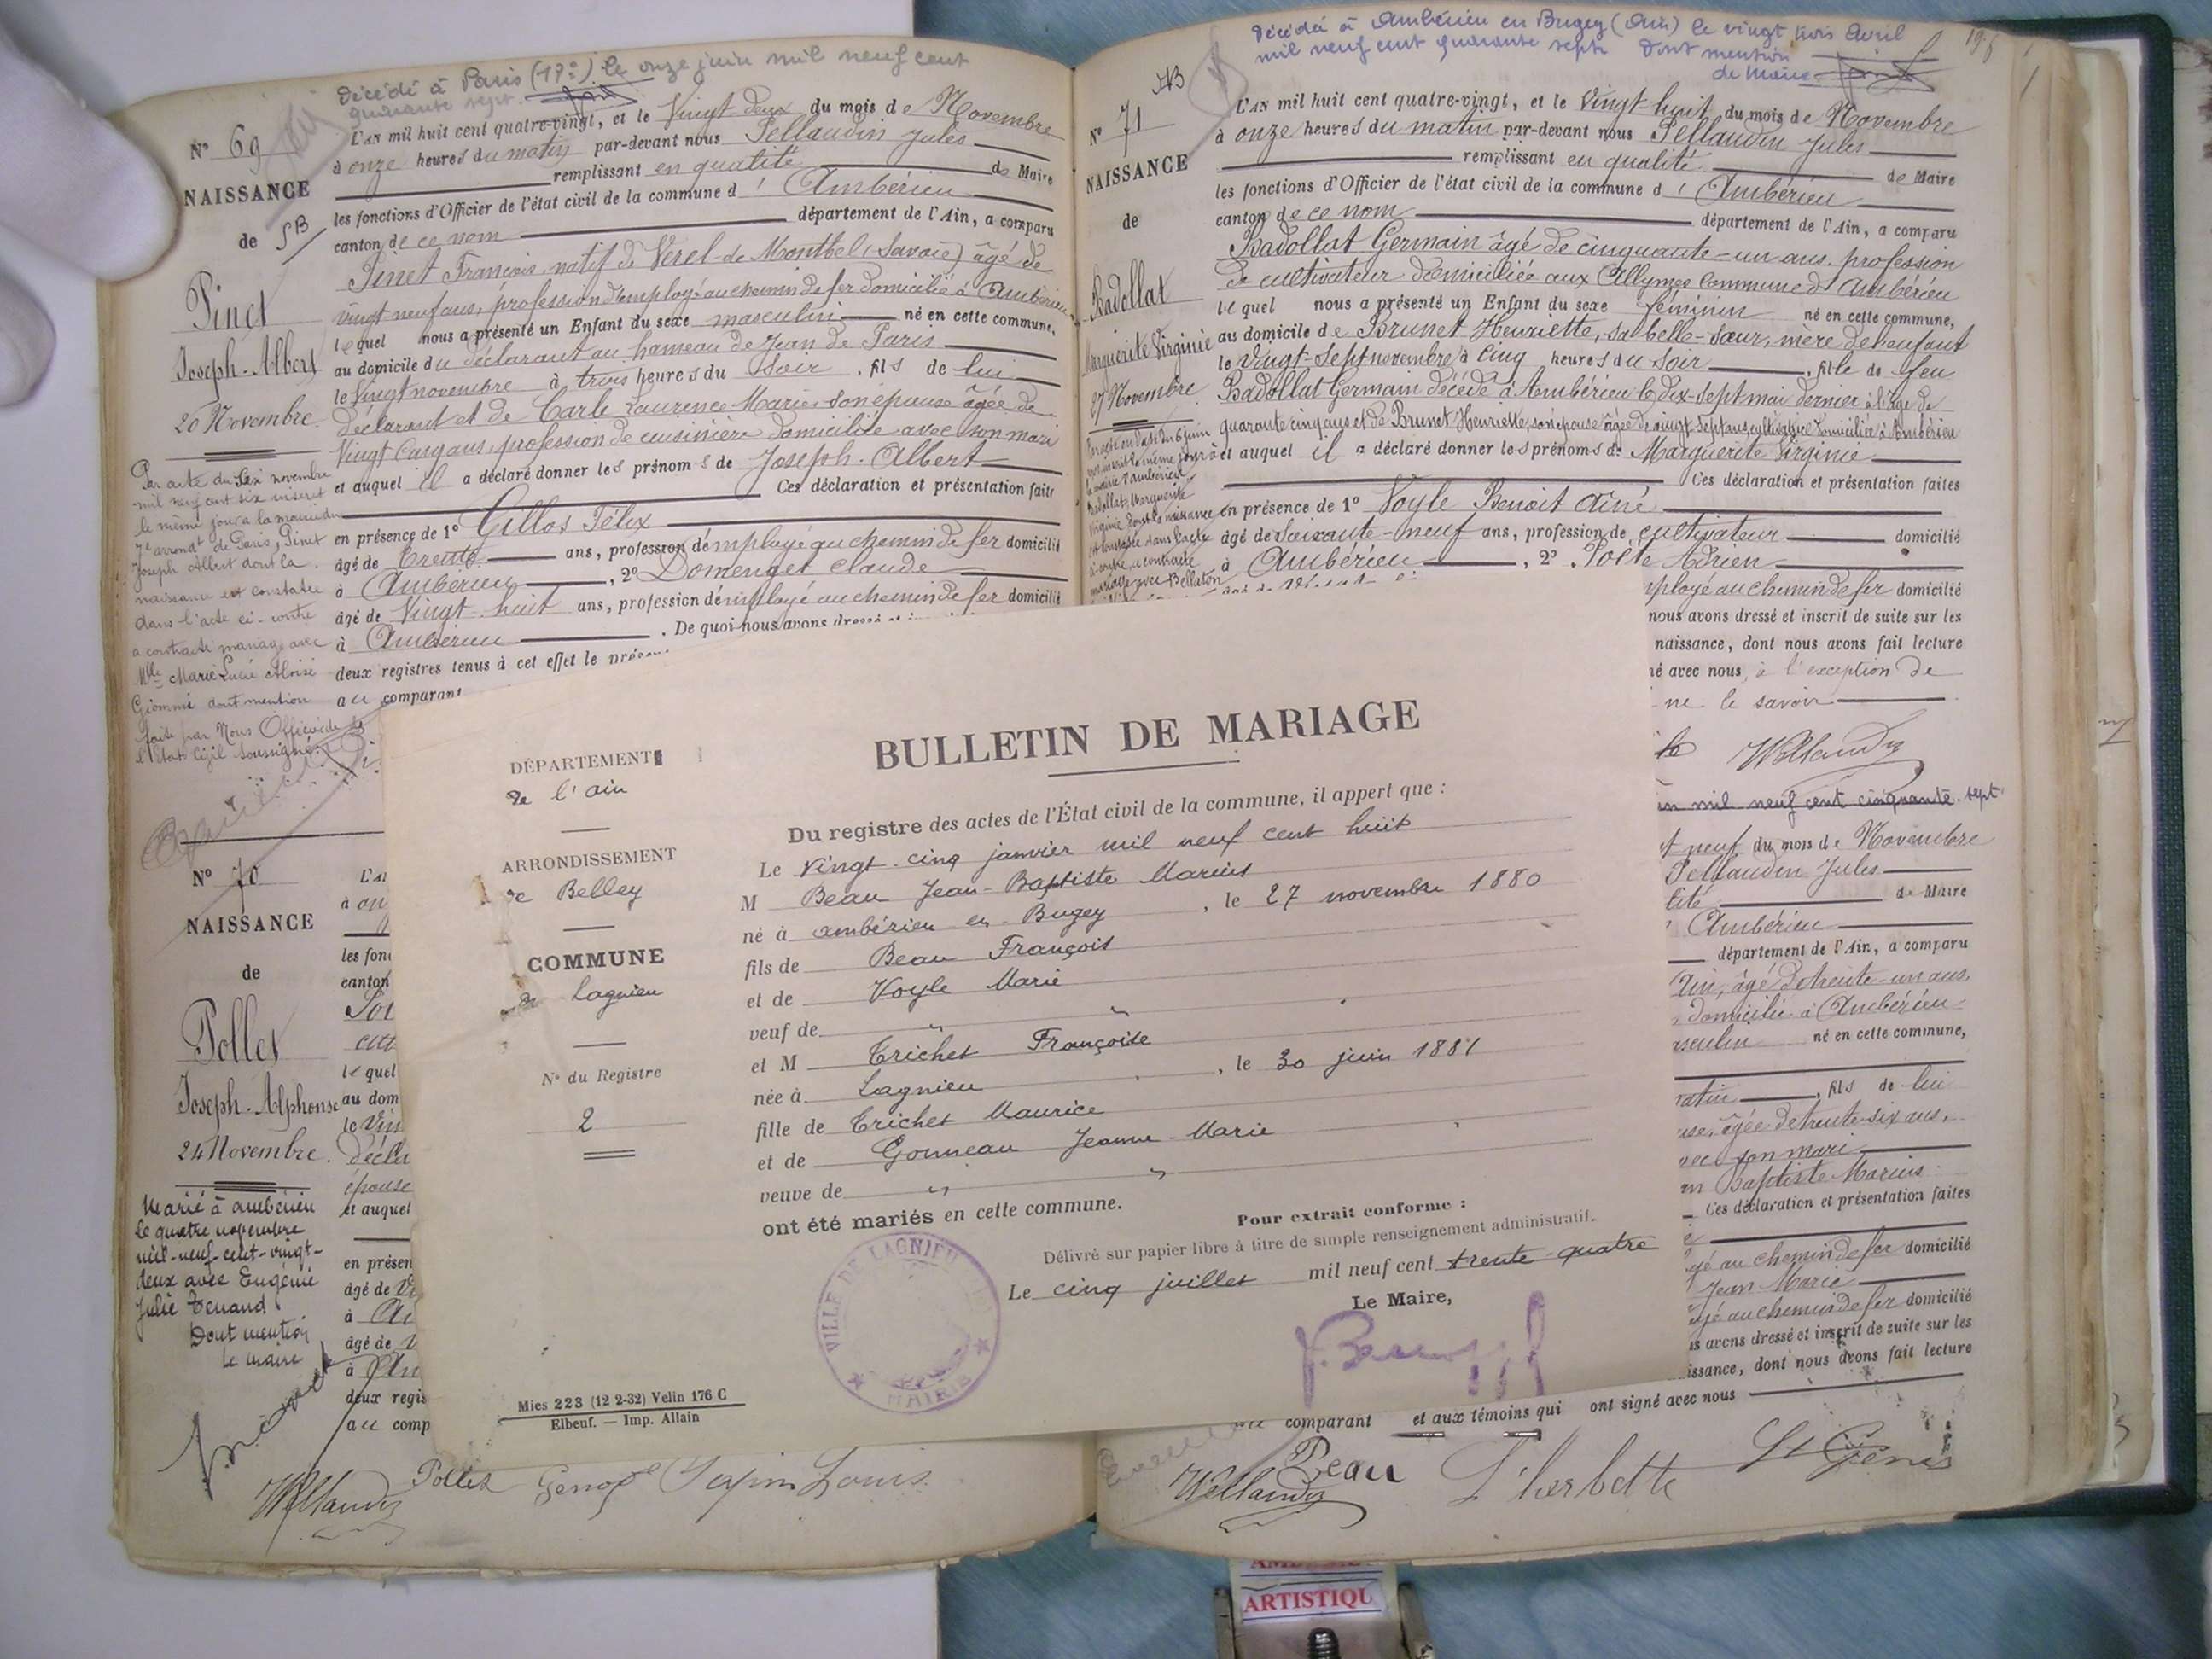 Décédé à Paris (17e) le onze juin mil neuf cent
quarante sept.
N° 69
NAISSANCE
de
Pinet
Joseph-Albert
20 Novembre.
Par acte du six novembre
mil neuf cent six inscrit
le même jour à la mairie du
7e arrondt de Paris, Pinet
Joseph Albert dont la
naissance est constatée
dans l'acte ci-contre
a contracté mariage avec
Mlle Marie Lucie Aloïse
dont mention
faite par Nous Officier de
l'Etat Civil soussigné.
L'AN mil huit cent quatre-vingt, et le Vingt-deux du mois de Novembre
à onze heures du matin par-devant nous Pellaudin Jules
remplissant en qualité de Maire
les fonctions d'Officier de l'état civil de la commune d'Ambérieu
canton de ce nom département de l'Ain, a comparu
Pinet François natif de Verel-de-Montbel (Savoie) âgé de
vingt neuf ans, profession d'employé au chemin de fer domicilié à Ambérieu
lequel nous a présenté un Enfant du sexe masculin né en cette commune,
au domicile du déclarant au hameau de Jean de Paris
le Vingt novembre à trois heures du soir, fils de lui
déclarant et de Carle Laurence Marie son épouse âgée de
Vingt cinq ans, profession de cuisinière domiciliée avec son mari
et auquel il a déclaré donner les prénoms de Joseph-Albert
Ces déclaration et présentation faites
en présence de 1° Félix
âgé de trente ans, profession d'employé au chemin de fer domicilié
à Ambérieu, 2° Domenget Claude
âgé de Vingt-huit ans, profession d'employé au chemin de fer domicilié
à Ambérieu. De quoi nous avons dressé
deux registres tenus à cet effet le présent
au comparant
N° 70
NAISSANCE
de
Pollet
Joseph-Alphonse
24 Novembre.
Marié à Ambérieu
le quatre novembre
mil-neuf-cent-vingt-
deux avec Eugénie
Julie Tenand
Dont mention
Le Maire
à on
les fon
canton
lequel
au dom
le Vin
décla
épouse
et auquel
en présen
âgé de
à
âgé de
à
deux regis
au comp
Pollet
Louis
Décédée à Ambérieu en Bugey (Ain) le vingt trois Avril
mil neuf cent quarante sept Dont mention
N° 71
NAISSANCE
de
Badollat
Marguerite Virginie
27 Novembre
L'AN mil huit cent quatre-vingt, et le Vingt-huit du mois de Novembre
à onze heures du matin par-devant nous Pellaudin Jules
remplissant en qualité de Maire
les fonctions d'Officier de l'état civil de la commune d'Ambérieu
canton de ce nom département de l'Ain, a comparu
Badollat Germain âgé de cinquante-un ans, profession
de cultivateur domicilié aux Allymes commune d'Ambérieu
lequel nous a présenté un Enfant du sexe féminin né en cette commune,
au domicile de Brunet Henriette, sa belle-sœur, mère de l'enfant
le Vingt-sept novembre à cinq heures du soir, fille de feu
Badollat Germain décédé à Ambérieu le dix-sept mai dernier à l'âge de
quarante cinq ans et de Brunet Henriette, son épouse âgée de vingt sept ans, cultivatrice domiciliée à Ambérieu
et auquel il a déclaré donner les prénoms de Marguerite Virginie
Ces déclaration et présentation faites
en présence de 1° Voyle Benoit aîné
âgé de Soixante-neuf ans, profession de cultivateur domicilié
à Ambérieu, 2° Adrien
employé au chemin de fer domicilié
nous avons dressé et inscrit de suite sur les
naissance, dont nous avons fait lecture
né avec nous, à l'exception de
ne le savoir
mil neuf cent cinquante-sept
neuf du mois de Novembre
Pellaudin Jules
de Maire
Ambérieu
département de l'Ain, a comparu
Ain, âgé de trente-un ans,
domicilié à Ambérieu
né en cette commune,
fils de lui
âgée de trente-six ans,
avec son mari
Baptiste Marius
Ces déclaration et présentation faites
au chemin de fer domicilié
Jean Marie
au chemin de fer domicilié
avons dressé et inscrit de suite sur les
issance, dont nous avons fait lecture
comparant et aux témoins qui ont signé avec nous
Beau L'herbette St Genis
BULLETIN DE MARIAGE
DÉPARTEMENT
de l'Ain
ARRONDISSEMENT
de Belley
COMMUNE
de Lagnieu
N° du Registre
2
Du registre des actes de l'État civil de la commune, il appert que :
Le Vingt-cinq janvier mil neuf cent huit
M Beau Jean-Baptiste Marius
né à Ambérieu en Bugey, le 27 novembre 1880
fils de Beau François
et de Voyle Marie
veuf de "
et M Trichet Françoise
née à Lagnieu, le 30 juin 1881
fille de Trichet Maurice
et de Gonneau Jeanne-Marie
veuve de " "
ont été mariés en cette commune.
Pour extrait conforme :
Délivré sur papier libre à titre de simple renseignement administratif.
Le cinq juillet mil neuf cent trente-quatre
Le Maire,
VILLE DE LAGNIEU
MAIRIE
Mies 223 (12 2-32) Velin 176 C
Elbeuf. — Imp. Allain
ARTISTIQU